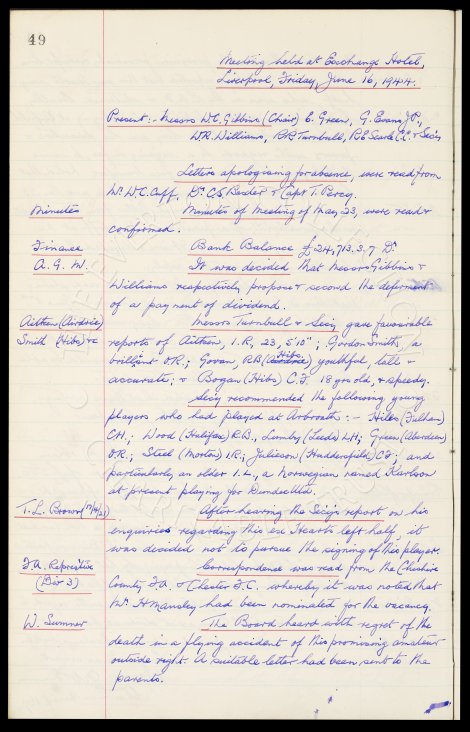 49
Meeting held at Exchange Hotel,
Liverpool, Friday, June 16, 1944.
Present:- Messrs W.C. Gibbins (Chair) E. Green, G. Evans, J.P.,
W.R. Williams, R.R. Turnbull, R.E. Searle (C.C. & Sec'y
Letters apologising for absence, were read from
Mr. W.C. Cuff, Dr. C.S. Baxter & Capt T. Percy.
Minutes
Minutes of Meeting of May 23, were read &
confirmed.
Finance
Bank Balance £24,713.3.7 Dr.
A. G. M.
It was decided that Messrs Gibbins &
Williams respectively propose & second the deferment
of a payment of dividend.
Aitken (Airdrie)
Messrs Turnbull & Sec'y gave favourable
Smith (Hibs) &c
reports of Aitken, I.R, 23, 5'10"; Gordon Smith, a
brilliant O.R.; Govan, R.B (Hibs) youthful, tall &
accurate; & Bogan (Hibs) C.F. 18 yrs old, & speedy.
Sec'y recommended the following young
players who had played at Arbroath:- Hiles (Fulham)
C.H.; Wood (Halifax) R.B., Lumby (Leeds) L.H; Green (Aberdeen)
O.R.; Steel (Morton) I.R; Juliesen (Huddersfield) C.F; and
particularly an older I.L., a Norwegian named Karlson
at present playing for Dundee Utd.
T. L. Brown
After hearing the Sec'y's report on his
enquiries regarding this ex Hearts left half, it
was decided not to pursue the signing of this player.
F.A. Reprs'tive
Correspondence was read from the Cheshire
(Div 3)
County F.A. & Chester F.C. whereby it was noted that
Mr. H Mansley had been nominated for the vacancy.
W. Sumner
The Board heard with regret of the
death in a flying accident of this promising amateur
outside right. A suitable letter had been sent to the
parents.